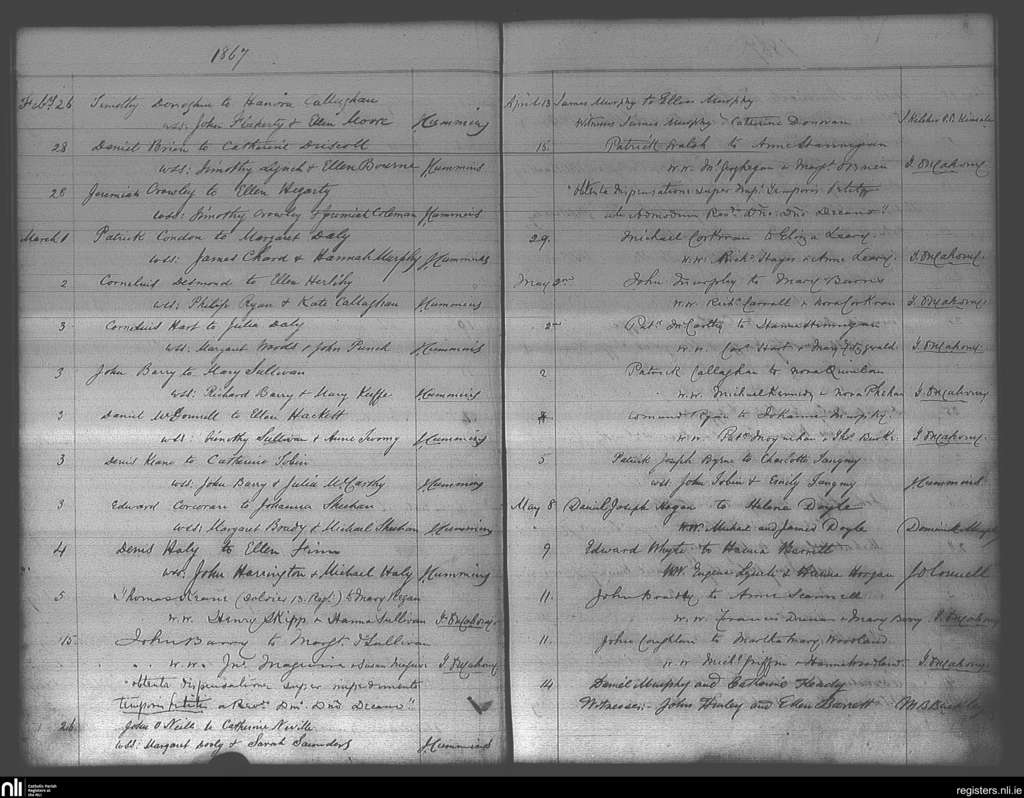 1867
Feby. 26 Timothy Donoghue to Hanora Callaghan
wss: John Flaherty & Ellen Moore JCummins
28 Daniel Brien to Catherine Driscoll
wss: Timothy Lynch & Ellen Bourne JCummins
28 Jeremiah Crowley to Ellen Hegarty
wss: Timothy Crowley & Jeremiah Coleman JCummins
March 1 Patrick Condon to Margaret Daly
wss: James Chard & Hannah Murphy JCummins
2 Cornelius Desmond to Ellen Herlihy
wss: Philip Ryan & Kate Callaghan JCummins
3. Cornelius Hart to Julia Daly
wss: Margaret Woods & John Punch JCummins
3 John Barry to Mary Sullivan
wss: Richard Barry & Mary Keeffe JCummins
3 Daniel McDonnell to Ellen Hackett
wss: Timothy Sullivan & Anne JCummins
3 Denis Keane to Catherine Tobin
wss: John Barry & Julia McCarthy JCummins
3 Edward Corcoran to Johanna Sheehan
wss: Margaret & Michael Sheehan JCummins
4 Denis Haly to Ellen Finn
wss: John Harrington & Michael Haly JCummins
5 Thomas Keane (Soldier 13. Regt.) to Mary Regan
W.W. Henry Skipp & Hanna Sullivan T. O'Mahony.
15 John Barry to Margt. O'Sullivan
W.W. Jno. Magnier & Susan T. O'Mahony
"obtenta dispensatione super impedimento
temporis a Revo. Dno. Dno. Decano".
26 John O'Neill to Catherine Neville
wss: Margaret Dooly & Sarah Saunders JCummins
April 13 James Murphy to Ellen Murphy
Witness James Murphy Catherine Donovan P.P. Kinsale
15. Patrick Walsh to Anne Hannigan
W.W. & Margt. T. O'Mahony
"obtenta dispensatione super Imp. temporis
ab Admodum Revo. Dno. Dno. Decano".
29. Michael Corkoran to Eliza Leary.
W.W. Richd. Hayes & Anne Leary T. O'Mahony.
May 2nd John Murphy to Mary Barns
W.W. Richd. Carroll & Nora Corkoran T. O'Mahony.
2nd Patk. McCarthy to Hanna Hannigan
W.W. Hart & Mary Fitzgerald T. O'Mahony.
2 Patrick Callaghan to Nora Quinlan
W.W. Michael Kennedy & Nora Phelan T. O'Mahony
Ryan to Johanna Murphy.
W.W. Patk. Moynihan & Thos. Burke. T. O'Mahony.
5 Patrick Joseph Byrne to Charlotte Tangney
wss John Tobin & Emily Tangney JCummins
May 8 Daniel Joseph Hogan to Helena Doyle
WW. Michael and James Doyle Dominick Murphy
9 Edward Whyte to Hanna Barrett
WW. Eugene Lynch & Hanna Horgan
11. John to Anne Scannell
W.W. Francis & Mary Barry T. O'Mahony
11. John Coughlan to Martha Mary Woodland
W.W. Michl. Griffin & Hanna Woodland. T. O'Mahony.
14 Daniel Murphy and Catherine
Witnesses:- John Finley and Ellen Barrett Buckley
nli
Catholic Parish
Registers at
the NLI
registers.nli.ie